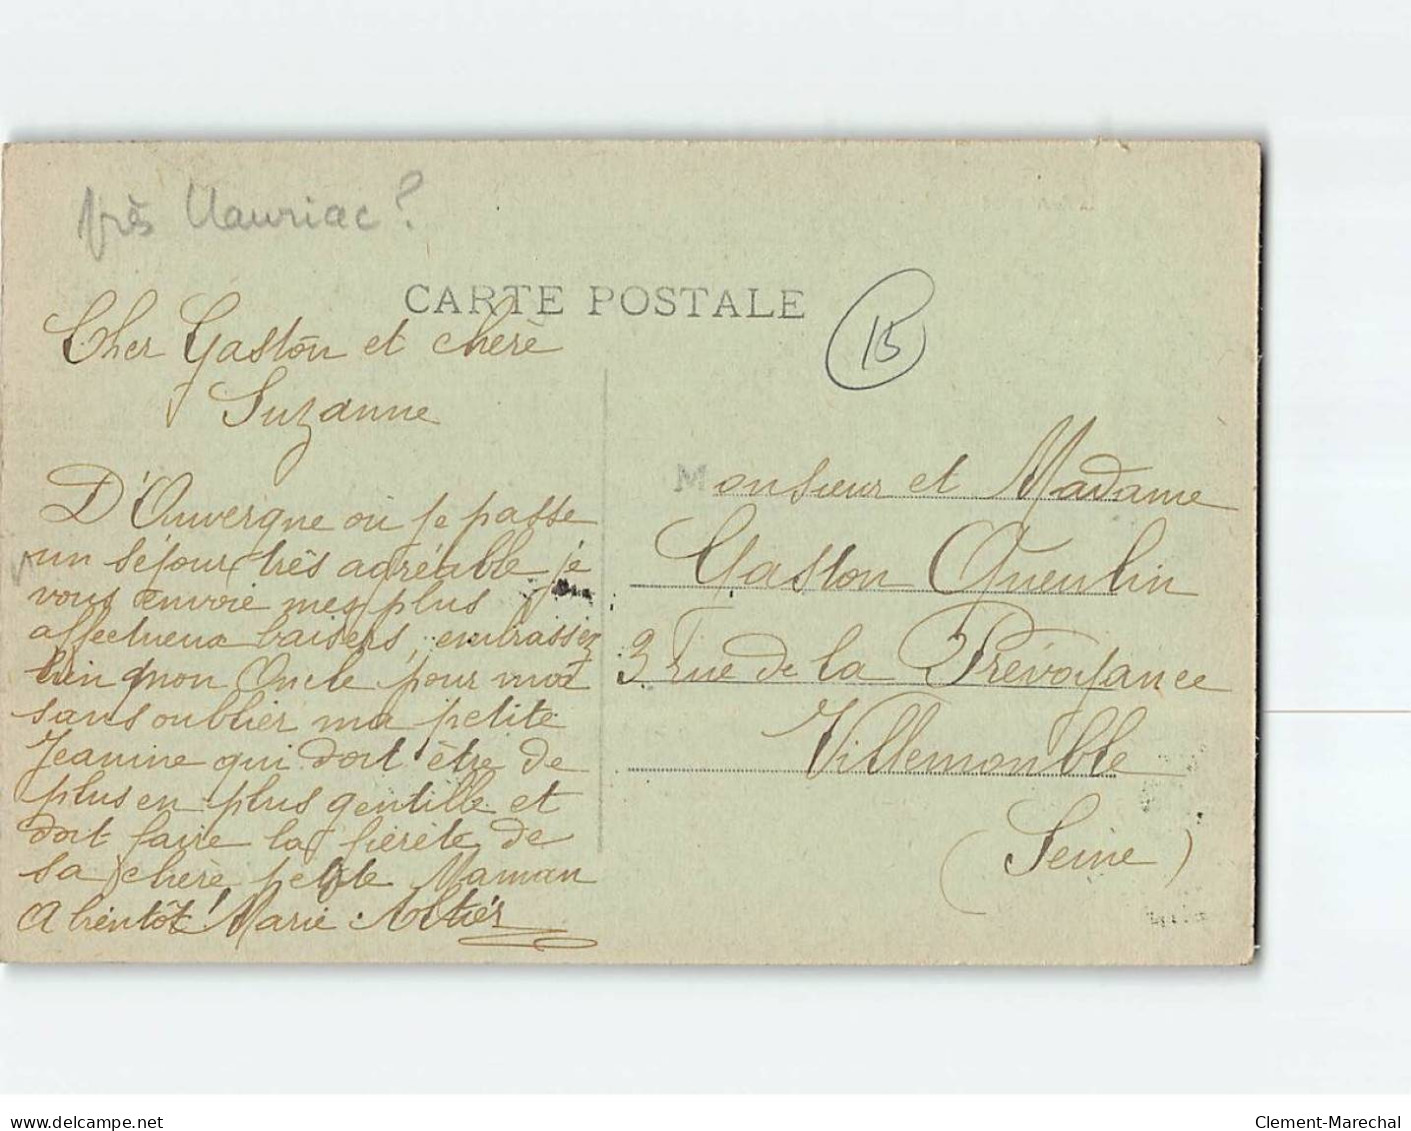 près Mauriac ?
CARTE POSTALE
15
Cher Gaston et chère
Suzanne
D'Auvergne où je passe
un séjour très agréable je
vous envoie mes plus
affectueux baisers, embrassez
bien mon Oncle pour moi
sans oublier ma petite
Jeanine qui doit être de
plus en plus gentille et
doit faire la fierété de
sa chère petite Maman
A bientôt ! Marie
Monsieur et Madame
Gaston Queulin
3 rue de la Prévoyance
Villemomble
(Seine)
www.delcampe.net
Clement-Marechal